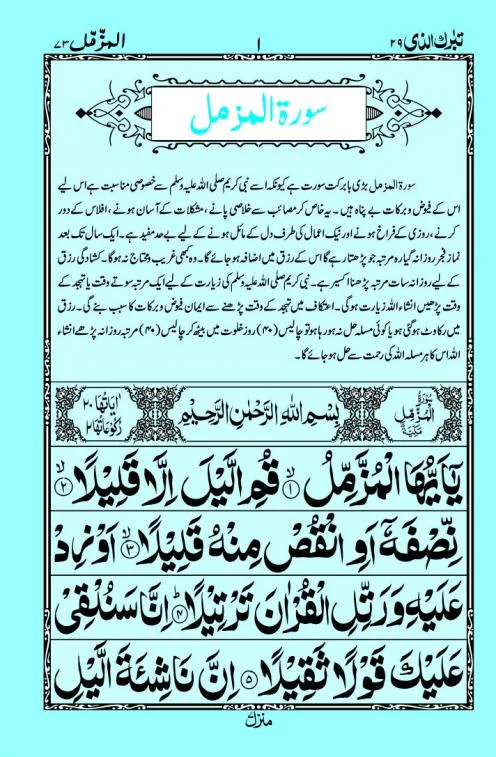 تبٰرك الذی ۲۹
۱
المزّمّل ۷۳
سورۃ المزمل
سورۃ المزمل بڑی بابرکت سورت ہے کیونکہ اسے نبی کریم صلی اللہ علیہ وسلم سے خصوصی مناسبت ہے اس لیے
اس کے فیوض و برکات بے پناہ ہیں۔ یہ خاص کر مصائب سے خلاصی پانے، مشکلات کے آسان ہونے، افلاس کے دور
کرنے، روزی کے فراخ ہونے اور نیک اعمال کی طرف دل کے مائل ہونے کے لیے بے حد مفید ہے۔ ایک سال تک بعد
نماز فجر روزانہ گیارہ مرتبہ جو پڑھتا رہے گا اس کے رزق میں اضافہ ہو جائے گا۔ وہ کبھی غریب یا محتاج نہ ہوگا۔ کشادگی رزق
کے لیے روزانہ سات مرتبہ پڑھنا اکسیر ہے۔ نبی کریم صلی اللہ علیہ وسلم کی زیارت کے لیے ایک مرتبہ سوتے وقت یا تہجد کے
وقت پڑھیں انشاءاللہ زیارت ہوگی۔ اعتکاف میں تہجد کے وقت پڑھنے سے ایمان فیوض و برکات کا سبب بنے گی۔ رزق
میں رکاوٹ ہوگئی ہو یا کوئی مسلہ حل نہ ہو رہا ہو تو چالیس (۴۰) روز خلوت میں بیٹھ کر چالیس (۴۰) مرتبہ روزانہ پڑھے انشاء
اللہ اس کا ہر مسلہ اللہ کی رحمت سے حل ہو جائے گا۔
سُوْرَةُ الْمُزَّمِّلِ مَكِّيَّةٌ
بِسْمِ اللّٰهِ الرَّحْمٰنِ الرَّحِيْمِ
اٰيَاتُهَا ۲۰ رُكُوْعَاتُهَا ۲
يٰٓاَيُّهَا الْمُزَّمِّلُ ۙ﴿۱﴾ قُمِ الَّيْلَ اِلَّا قَلِيْلًا ۙ﴿۲﴾
نِّصْفَهٗٓ اَوِ انْقُصْ مِنْهُ قَلِيْلًا ۙ﴿۳﴾ اَوْ زِدْ
عَلَيْهِ وَرَتِّلِ الْقُرْاٰنَ تَرْتِيْلًا ؕ﴿۴﴾ اِنَّا سَنُلْقِيْ
عَلَيْكَ قَوْلًا ثَقِيْلًا ﴿۵﴾ اِنَّ نَاشِئَةَ الَّيْلِ
منزل